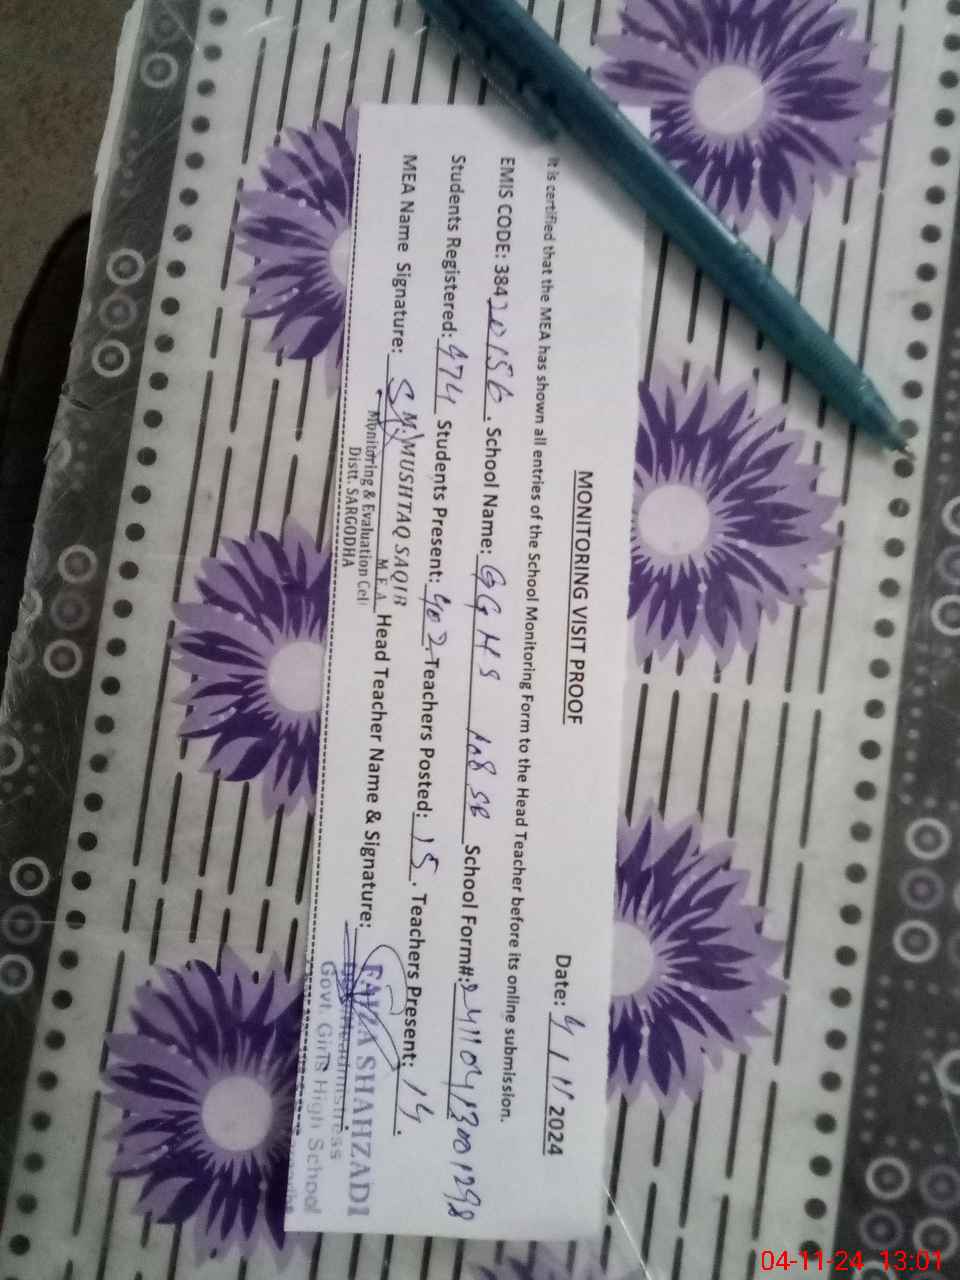 MONITORING VISIT PROOF
Date: 4/11/2024
It is certified that the MEA has shown all entries of the School Monitoring Form to the Head Teacher before its online submission.
EMIS CODE: 38420156. School Name: GGHS 118 SB School Form#: 24110413001298
Students Registered: 474 Students Present: 402 Teachers Posted: 15. Teachers Present: 14.
MEA Name Signature: M. MUSHTAQ SAQIB Head Teacher Name & Signature: FAIZA SHAHZADI
M.E.A
Monitoring & Evaluation Cell
Distt. SARGODHA
Headmistress
Govt. Girls High School
04-11-24 13:01